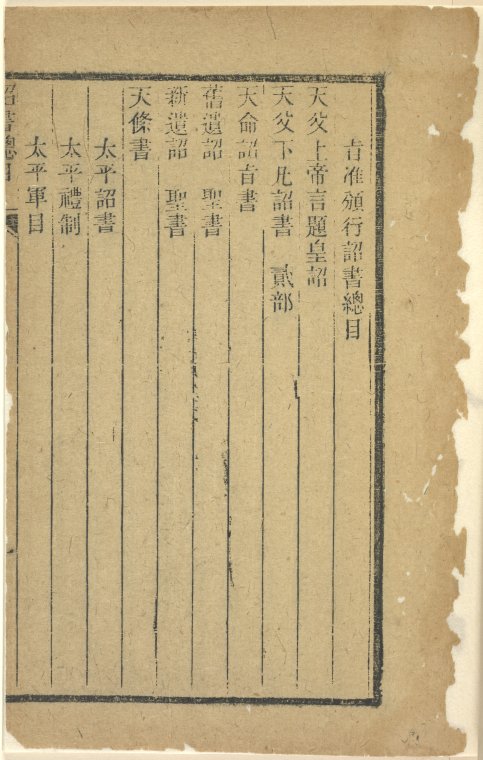 旨准頒行詔書總目
天父上帝言題皇詔
天父下凡詔書　貳部
天命詔旨書
舊遺詔　聖書
新遺詔　聖書
天條書
太平詔書
太平禮制
太平軍目
詔書總目